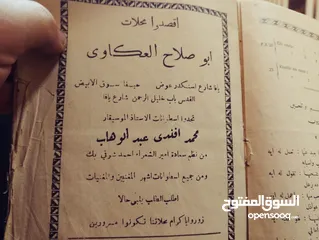 اقصدوا محلات
ابو صلاح العكاوى
يافا شارع اسكندر عوض حيفا سوق الابيض
القدس باب خليل الرحمن شارع يافا
تجدوا اسطوانات الاستاذ الموسيقار
محمد افندى عبد الوهاب
من نظم سعادة امير الشعراء احمد شوقي بك
ومن جميع اسطوانات اشهر المغنيين والمغنيات
اطلب الطلب يلبى حالا
زوروا يا كرام محلاتنا تكونوا مسرورين
السوق المفتوح
opensooq.com